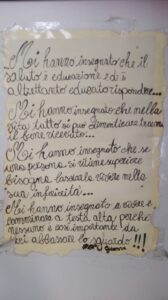 Mi hanno insegnato che il
saluto è educazione ed è
altrettanto educato rispondere...
Mi hanno insegnato che nella
vita tutto si può dimenticare tranne
il bene ricevuto...
Mi hanno insegnato che se
una persona si ritiene superiore
bisogna lasciarla vivere nella
sua infelicità...
Mi hanno insegnato a vivere e
camminare a testa alta, perché
nessuno è così importante da
farci abbassare lo sguardo!!!